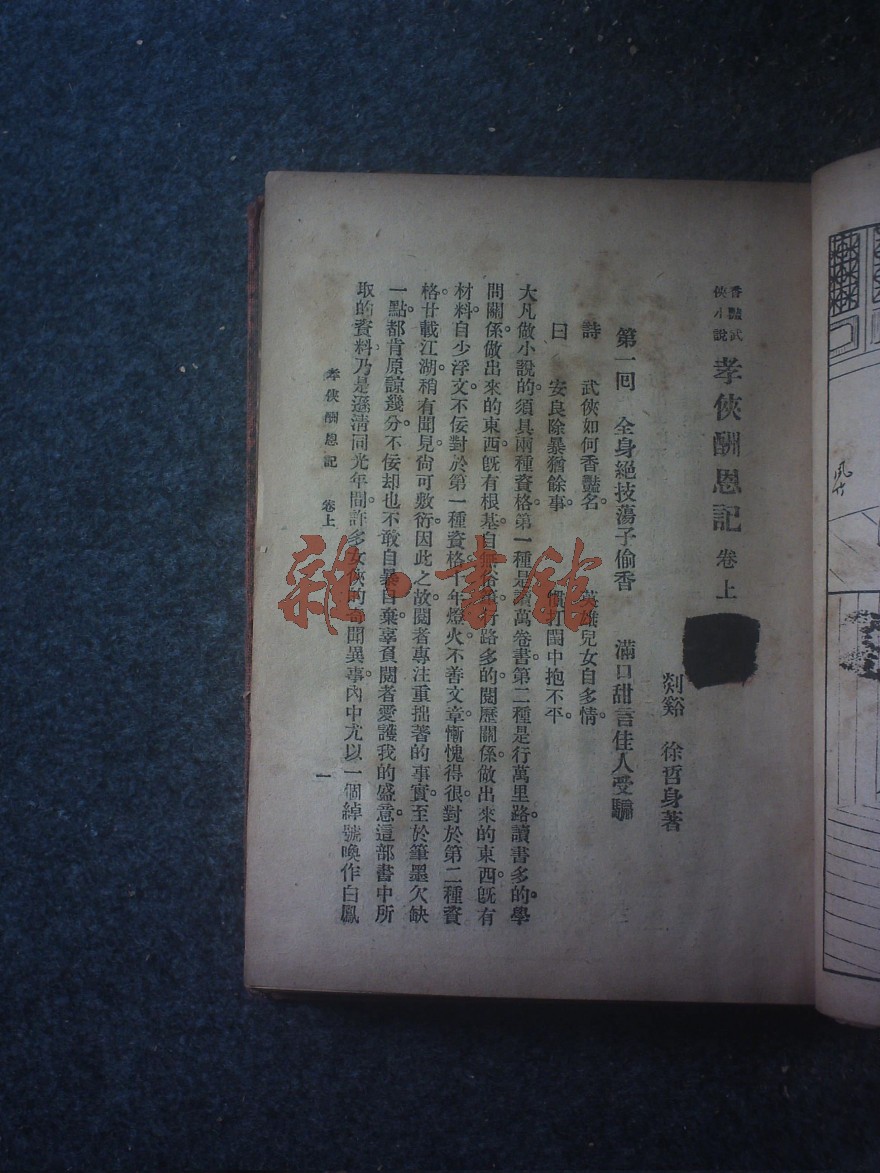 香豔武
俠小說
孝俠酬恩記 卷上
剡谿 徐哲身著
第一回 全身絕技蕩子偷香 滿口甜言佳人受騙
詩 武俠如何香豔名。 英雄兒女自多情。
曰 安良除暴猶餘事。 慣打閨中抱不平。
大凡做小說的。須具兩種資格。第一種是讀萬卷書。第二種是行萬里路。讀書多的。學
問關係。做出來的東西。旣有根基。自無俗 行路多的。閱歷關係。做出來的東西。旣有
材料。自少浮文。不佞對於第一種資格。十年燈火。不善文章。慚愧得很。對於第二種資
格。廿載江湖。稍有聞見。尙可敷衍。因此之故。閱者專注重拙著的事實。至於筆墨欠缺
一點。都肯原諒幾分。不佞却也不敢自暴自棄。辜負閱者愛護我的盛意。這部書中所
取的資料。乃是遜淸同光年間。許多女俠的奇聞異事。內中尤以一個綽號喚作白鳳
孝俠酬恩記 卷上
一
雜·書館